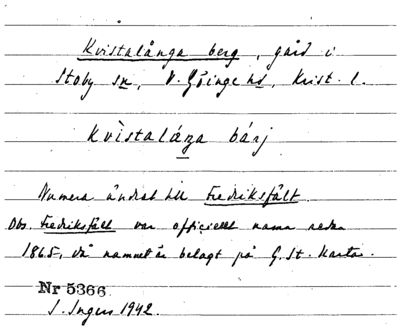 Kvistalånga berg, gård i
Stoby sn, V. Göinge hd, Krist. l.
kvìstaláŋa bárj
Numera ändrat till Fredriksfält.
Obs. Fredriksfält var officiellt namn redan
1865, då namnet är belagt på G. St. Karta.
Nr 5366
I. Ingers 1942.